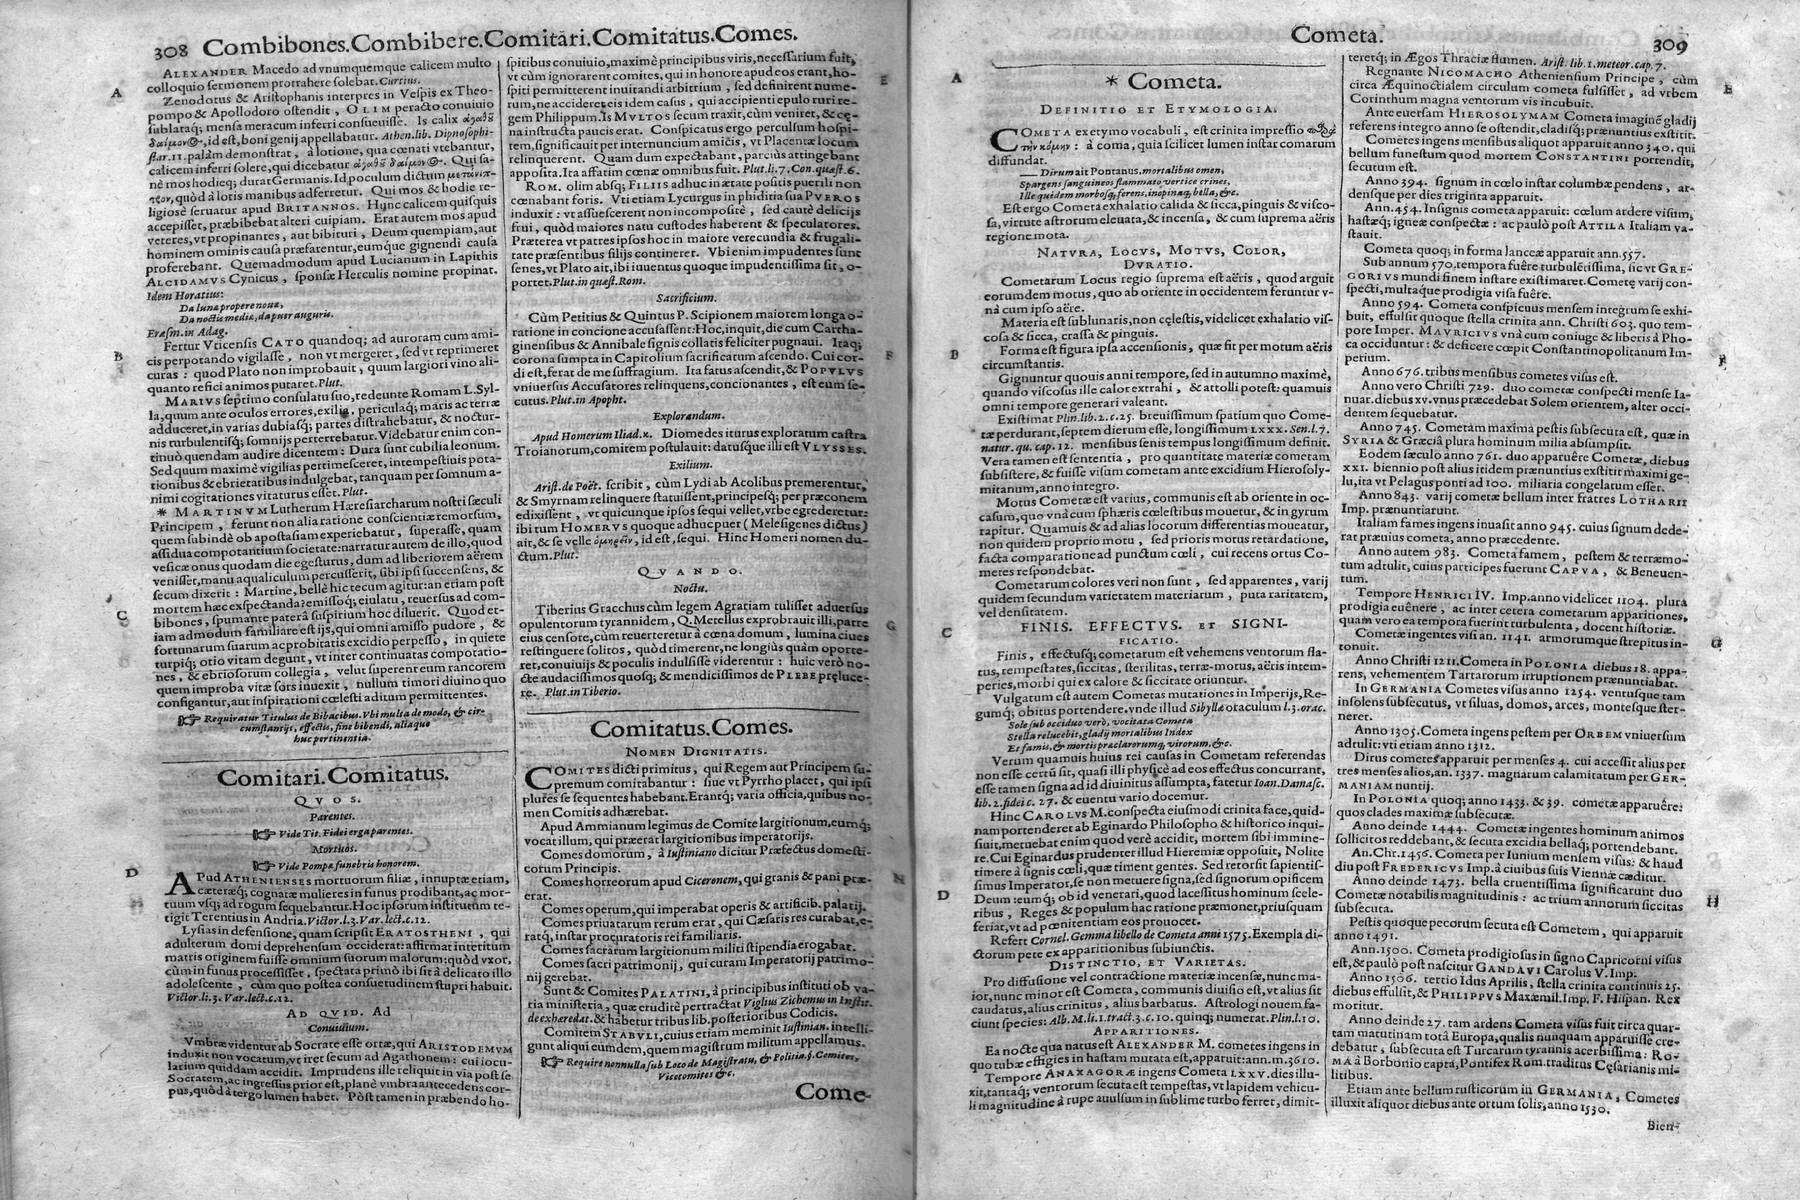 308 Combibones. Combibere. Comitari. Comitatus. Comes.
ALEXANDER Macedo ad vnumquemque calicem multo
colloquio sermonem protrahere solebat. Curtius.
Zenodotus & Aristophanis interpres in Vespis ex Theo-
pompo & Apollodoro ostendit, OLIM peracto conuiuio
sublataq; mensa meracum inferri consueuisse. Is calix ἀγαθοῦ
δαίμονος, id est, boni genij appellabatur. Athen. lib. Dipnosophi-
star. 11. palàm demonstrat, à lotione, qua cœnati vtebantur,
calicem inferri solere, qui dicebatur ἀγαθοῦ δαίμονος. Qui sa-
nè mos hodieq; durat Germanis. Id poculum dictum μετανιπ-
τρον, quòd à lotis manibus adferretur. Qui mos & hodie re-
ligiosè seruatur apud BRITANNOS. Hunc calicem quisquis
accepisset, præbibebat alteri cuipiam. Erat autem mos apud
veteres, vt propinantes, aut bibituri, Deum quempiam, aut
hominem ominis causa præfarentur, eumque gignendi causa
proferebant. Quemadmodum apud Lucianum in Lapithis
ALCIDAMVS Cynicus, sponsæ Herculis nomine propinat.
Idem Horatius:
Da lunæ propere nouæ,
Da noctis mediæ, da puer auguris.
Erasm. in Adag.
Fertur Vticensis CATO quandoq; ad auroram cum ami-
cis perpotando vigilasse, non vt mergeret, sed vt reprimeret
curas: quod Plato non improbauit, quum largiori vino ali-
quanto refici animos putaret. Plut.
MARIVS septimo consulatu suo, redeunte Romam L. Syl-
la, quum ante oculos errores, exilia, periculaq; maris ac terræ
adduceret, in varias dubiasq; partes distrahebatur, & noctur-
nis turbulentisq; somnijs perterrebatur. Videbatur enim con-
tinuò quendam audire dicentem: Dura sunt cubilia leonum.
Sed quum maximè vigilias pertimesceret, intempestiuis pota-
tionibus & ebrietatibus indulgebat, tanquam per somnum a-
nimi cogitationes vitaturus esset. Plut.
* MARTINVM Lutherum Hæresiarcharum nostri sæculi
Principem, ferunt non alia ratione conscientiæ remorsum,
quem subindè ob apostasiam experiebatur, superasse, quam
assidua compotantium societate: narratur autem de illo, quod
vesicæ onus quodam die egesturus, dum ad liberiorem aërem
venisset, manu aqualiculum percusserit, sibi ipsi succensens, &
secum dixerit: Martine, bellè hic tecum agitur: an etiam post
mortem hæc exspectanda? emissoq; eiulatu, reuersus ad com-
bibones, spumante patera suspirium hoc diluerit. Quod et-
iam admodum familiare est ijs, qui omni amisso pudore, &
fortunarum suarum ac probitatis excidio perpesso, in quiete
turpiq; otio vitam degunt, vt inter continuatas compotatio-
nes, & ebriosorum collegia, velut superenteum rancorem
quem improba vitæ sors inuexit, nullum timori diuino quo
configantur, aut inspirationi cœlesti aditum permittentes.
☞ Requiratur Titulus de Bibacibus. Vbi multa de modo, & cir-
cumstantijs, effectis, fine bibendi, aliaque
huc pertinentia.
Comitari. Comitatus.
QVOS.
Parentes.
☞ Vide Tit. Fidei erga parentes.
Mortuos.
☞ Vide Pompa funebris honorem.
APud ATHENIENSES mortuorum filiæ, innuptæ etiam,
cæteræq; cognatæ mulieres in funus prodibant, ac mor-
tuum vsq; ad rogum sequebantur. Hoc ipsorum institutum te-
tigit Terentius in Andria. Victor. l. 3. Var. lect. c. 12.
Lysias in defensione, quam scripsit ERATOSTHENI, qui
adulterum domi deprehensum occiderat: affirmat interitum
matris originem fuisse omnium suorum malorum: quòd vxor,
cùm in funus processisset, spectata primò ibi sit à delicato illo
adolescente, cùm quo postea consuetudinem stupri habuit.
Victor. li. 3. Var. lect. c. 12.
AD QVID. Ad
Conuiuium.
Vmbræ videntur ab Socrate esse ortæ, qui ARISTODEMVM
induxit non vocatum, vt iret secum ad Agathonem: cui iocu-
larium quiddam accidit. Imprudens ille reliquit in via post se
Socratem, ac ingressus prior est, planè vmbra antecedens cor-
pus, quòd à tergo lumen habet. Pòst tamen in præbendo ho-
spitibus conuiuio, maximè principibus viris, necessarium fuit,
vt cùm ignorarent comites, qui in honore apud eos erant, ho-
spiti permitterent inuitandi arbitrium, sed definirent nume-
rum, ne accideret eis idem casus, qui accipienti epulo ruri re-
gem Philippum. Is MVLTOS secum traxit, cùm veniret, & cę-
na instructa paucis erat. Conspicatus ergo perculsum hospi-
tem, significauit per internuncium amicis, vt Placentæ locum
relinquerent. Quam dum expectabant, parcius attingebant
apposita. Ita affatim cœnæ omnibus fuit. Plut. li. 7. Con. quæst. 6.
ROM. olim absq; FILIIS adhuc in ætate positis puerili non
cœnabant foris. Vti etiam Lycurgus in phiditia sua PVEROS
induxit: vt assuescerent non incompositè, sed cautè delicijs
frui, quòd maiores natu custodes haberent & speculatores.
Præterea vt patres ipsos hoc in maiore verecundia & frugali-
tate præsentibus filijs contineret. Vbi enim impudentes sunt
senes, vt Plato ait, ibi iuuentus quoque impudentissima sit, o-
portet. Plut. in quæst. Rom.
Sacrificium.
Cùm Petitius & Quintus P. Scipionem maiorem longa o-
ratione in concione accusassent: Hoc, inquit, die cum Cartha-
ginensibus & Annibale signis collatis feliciter pugnaui. Itaq;
corona sumpta in Capitolium sacrificatum ascendo. Cui cor-
di est, ferat de me suffragium. Ita fatus ascendit, & POPVLVS
vniuersus Accusatores relinquens, concionantes, est eum se-
cutus. Plut. in Apopht.
Explorandum.
Apud Homerum Iliad. κ. Diomedes iturus exploratum castra
Troianorum, comitem postulauit: datusque illi est VLYSSES.
Exilium.
Arist. de Poët. scribit, cùm Lydi ab Aeolibus premerentur,
& Smyrnam relinquere statuissent, principesq; per præconem
edixissent, vt quicunque ipsos sequi vellet, vrbe egrederetur:
ibi tum HOMERVS quoque adhuc puer (Melesigenes dictus)
ait, & se velle ὁμηρεῖν, id est, sequi. Hinc Homeri nomen du-
ctum. Plut.
QVANDO.
Noctu.
Tiberius Gracchus cùm legem Agrariam tulisset aduersus
opulentorum tyrannidem, Q. Metellus exprobrauit illi, patre
eius censore, cùm reuerteretur à cœna domum, lumina ciues
restinguere solitos, quòd timerent, ne longiùs quàm oporte-
ret, conuiuijs & poculis indulsisse viderentur: huic verò no-
cte audacissimos quosq; & mendicissimos de PLEBE prælуce-
re. Plut. in Tiberio.
Comitatus. Comes.
NOMEN DIGNITATIS.
COMITES dicti primitus, qui Regem aut Principem su-
premum comitabantur: siue vt Pyrrho placet, qui ipsi
plures se sequentes habebant. Erantq; varia officia, quibus no-
men Comitis adhærebat.
Apud Ammianum legimus de Comite largitionum, eumq;
vocat illum, qui præerat largitionibus imperatorijs.
Comes domorum, à Iustiniano dicitur Præfectus domesti-
corum Principis.
Comes horreorum apud Ciceronem, qui granis & pani præ-
erat.
Comes operum, qui imperabat operis & artificib. palatij.
Comes priuatarum rerum erat, qui Cæsaris res curabat, e-
ratq; instar procuratoris rei familiaris.
Comes sacrarum largitionum militi stipendia erogabat.
Comes sacri patrimonij, qui curam Imperatorij patrimo-
nij gerebat.
Sunt & Comites PALATINI, à principibus instituti ob va-
ria ministeria, quæ eruditè pertractat Viglius Zichemus in Instit.
de exhæredat. & habetur tribus lib. posterioribus Codicis.
Comitem STABVLI, cuius etiam meminit Iustinian. intelli-
gunt aliqui eumdem, quem magistrum militum appellamus.
☞ Require nonnulla sub Loco de Magistratu, & Politia. §. Comites,
Vicecomites &c.
Come-
Cometa. 309
* Cometa.
DEFINITIO ET ETYMOLOGIA.
COMETA ex etymo vocabuli, est crinita impressio
τὴν κόμην: à coma, quia scilicet lumen instar comarum
diffundat.
Dirum ait Pontanus, mortalibus omen,
Spargens sanguineos flammato vertice crines,
Ille quidem morbosq; ferens, inopinaq; bella, &c.
Est ergo Cometa exhalatio calida & sicca, pinguis & visco-
sa, virtute astrorum eleuata, & incensa, & cum suprema aëris
regione mota.
NATVRA, LOCVS, MOTVS, COLOR,
DVRATIO.
Cometarum Locus regio suprema est aëris, quod arguit
eorumdem motus, quo ab oriente in occidentem feruntur v-
nà cum ipso aëre.
Materia est sublunaris, non cęlestis, videlicet exhalatio vis-
cosa & sicca, crassa & pinguis.
Forma est figura ipsa accensionis, quæ fit per motum aëris
circumstantis.
Gignuntur quouis anni tempore, sed in autumno maximè,
quando viscosus ille calor extrahi, & attolli potest: quamuis
omni tempore generari valeant.
Existimat Plin. lib. 2. c. 25. breuissimum spatium quo Come-
tæ perdurant, septem dierum esse, longissimum LXXX. Sen. l. 7.
natur. qu. cap. 12. mensibus senis tempus longissimum definit.
Vera tamen est sententia, pro quantitate materiæ cometam
subsistere, & fuisse visum cometam ante excidium Hierosoly-
mitanum, anno integro.
Motus Cometæ est varius, communis est ab oriente in oc-
casum, quo vnà cum sphæris cœlestibus mouetur, & in gyrum
rapitur. Quamuis & ad alias locorum differentias moueatur,
non quidem proprio motu, sed prioris motus retardatione,
facta comparatione ad punctum cœli, cui recens ortus Co-
metes respondebat.
Cometarum colores veri non sunt, sed apparentes, varij
quidem secundum varietatem materiarum, puta raritatem,
vel densitatem.
FINIS. EFFECTVS. ET SIGNI-
FICATIO.
Finis, effectusq; cometarum est vehemens ventorum fla-
tus, tempestates, siccitas, sterilitas, terræ-motus, aëris intem-
peries, morbi qui ex calore & siccitate oriuntur.
Vulgatum est autem Cometas mutationes in Imperijs, Re-
gumq; obitus portendere. vnde illud Sibyllæ oraculum l. 3. orac.
Sole sub occiduo verò, vocitata Cometa
Stella relucebit, gladij mortalibus Index
Et famis, & mortis præclarorumq; virorum, &c.
Verum quamuis huius rei causas in Cometam referendas
non esse certũ sit, quasi illi physicè ad eos effectus concurrant,
esse tamen signa ad id diuinitus assumpta, fatetur Ioan. Damasc.
lib. 2. fidei c. 27. & euentu vario docemur.
Hinc CAROLVS M. conspecta eiusmodi crinita face, quid-
nam portenderet ab Eginardo Philosopho & historico inqui-
siuit, metuebat enim quod verè accidit, mortem sibi immine-
re. Cui Eginardus prudenter illud Hieremiæ opposuit, Nolite
timere à signis cœli, quæ timent gentes. Sed retorsit sapientis-
simus Imperator, se non metuere signa, sed signorum opificem
Deum: eumq; ob id venerari, quod lacessitus hominum scele-
ribus, Reges & populum hac ratione præmonet, priusquam
feriat, vt ad pœnitentiam eos prouocet.
Refert Cornel. Gemma libello de Cometa anni 1575. Exempla di-
ctorum pete ex apparitionibus subiunctis.
DISTINCTIO, ET VARIETAS.
Pro diffusione vel contractione materiæ incensæ, nunc ma-
ior, nunc minor est Cometa, communis diuisio est, vt alius sit
caudatus, alius crinitus, alius barbatus. Astrologi nouem fa-
ciunt species: Alb. M. li. 1. tract. 3. c. 10. quinq; numerat. Plin. l. 10.
APPARITIONES.
Ea nocte qua natus est ALEXANDER M. cometes ingens in
quo tubæ effigies in hastam mutata est, apparuit: ann. m. 3610.
Tempore ANAXAGORÆ ingens Cometa LXXV. dies illu-
xit, tantaq; ventorum secuta est tempestas, vt lapidem vehicu-
li magnitudine à rupe auulsum in sublime turbo ferret, dimit-
teretq; in Ægos Thraciæ flumen. Arist. lib. 1. meteor. cap. 7.
Regnante NICOMACHO Atheniensium Principe, cùm
circa Æquinoctialem circulum cometa fulsisset, ad vrbem
Corinthum magna ventorum vis incubuit.
Ante euersam HIEROSOLYMAM Cometa imaginẽ gladij
referens integro anno se ostendit, cladisq; prænuntius exstitit.
Cometes ingens mensibus aliquot apparuit anno 340. qui
bellum funestum quod mortem CONSTANTINI portendit,
secutum est.
Anno 394. signum in cœlo instar columbæ pendens, ar-
densque per dies triginta apparuit.
Ann. 454. Insignis cometa apparuit: cœlum ardere visum,
hastæq; igneæ conspectæ: ac paulò post ATTILA Italiam va-
stauit.
Cometa quoq; in forma lanceæ apparuit ann. 557.
Sub annum 570. tempora fuêre turbulētissima, sic vt GRE-
GORIVS mundi finem instare existimaret. Cometę varij con-
specti, multaque prodigia visa fuêre.
Anno 594. Cometa conspicuus mensem integrum se exhi-
buit, effulsit quoque stella crinita ann. Christi 603. quo tem-
pore Imper. MAVRICIVS vnà cum coniuge & liberis à Pho-
ca occiduntur: & deficere cœpit Constantinopolitanum Im-
perium.
Anno 676. tribus mensibus cometes visus est.
Anno vero Christi 729. duo cometæ conspecti mense Ia-
nuar. diebus xv. vnus præcedebat Solem orientem, alter occi-
dentem sequebatur.
Anno 745. Cometam maxima pestis subsecuta est, quæ in
SYRIA & Græciâ plura hominum milia absumpsit.
Eodem sæculo anno 761. duo apparuêre Cometæ, diebus
XXI. biennio post alius itidem prænuntius exstitit maximi ge-
lu, ita vt Pelagus ponti ad 100. miliaria congelatum esset.
Anno 843. varij cometæ bellum inter fratres LOTHARII
Imp. prænuntiarunt.
Italiam fames ingens inuasit anno 945. cuius signum dede-
rat præuius cometa, anno præcedente.
Anno autem 983. Cometa famem, pestem & terræmo-
tum adtulit, cuius participes fuerunt CAPVA, & Beneuen-
tum.
Tempore HENRICI IV. Imp. anno videlicet 1104. plura
prodigia euênere, ac inter cetera cometarum apparitiones,
quam vero ea tempora fuerint turbulenta, docent historiæ.
Cometæ ingentes visi an. 1141. armorumque strepitus in-
tonuit.
Anno Christi 1211. Cometa in POLONIA diebus 18. appa-
rens, vehementem Tartarorum irruptionem prænuntiabat.
In GERMANIA Cometes visus anno 1254. ventusque tam
insolens subsecutus, vt siluas, domos, arces, montesque ster-
neret.
Anno 1305. Cometa ingens pestem per ORBEM vniuersum
adtulit: vti etiam anno 1312.
Dirus cometes apparuit per menses 4. cui accessit alius per
tres menses alios, an. 1337. magnarum calamitatum per GER-
MANIAM nuntij.
In POLONIA quoq; anno 1433. & 39. cometæ apparuêre:
quos clades maximæ subsecutæ.
Anno deinde 1444. Cometæ ingentes hominum animos
sollicitos reddebant, & secuta excidia bellaq; portendebant.
An. Chr. 1456. Cometa per Iunium mensem visus: & haud
diu post FREDERICVS Imp. à ciuibus suis Viennæ cæditur.
Anno deinde 1473. bella cruentissima significarunt duo
Cometæ notabilis magnitudinis: ac trium annorum siccitas
subsecuta.
Pestis quoque pecorum secuta est Cometem, qui apparuit
anno 1491.
Ann. 1500. Cometa prodigiosus in signo Capricorni visus
est, & paulò post nascitur GANDAVI Carolus V. Imp.
Anno 1506. tertio Idus Aprilis, stella crinita continuis 25.
diebus effulsit, & PHILIPPVS Maxæmil. Imp. F. Hispan. Rex
moritur.
Anno deinde 27. tam ardens Cometa visus fuit circa quar-
tam matutinam totâ Europa, qualis nunquam apparuisse cre-
debatur, subsecuta est Turcarum tyrannis acerbissima: RO-
MA à Borbonio capta, Pontifex Rom. traditus Cęsarianis mi-
litibus.
Etiam ante bellum rusticorum in GERMANIA, Cometes
illuxit aliquot diebus ante ortum solis, anno 1530.
Bien-